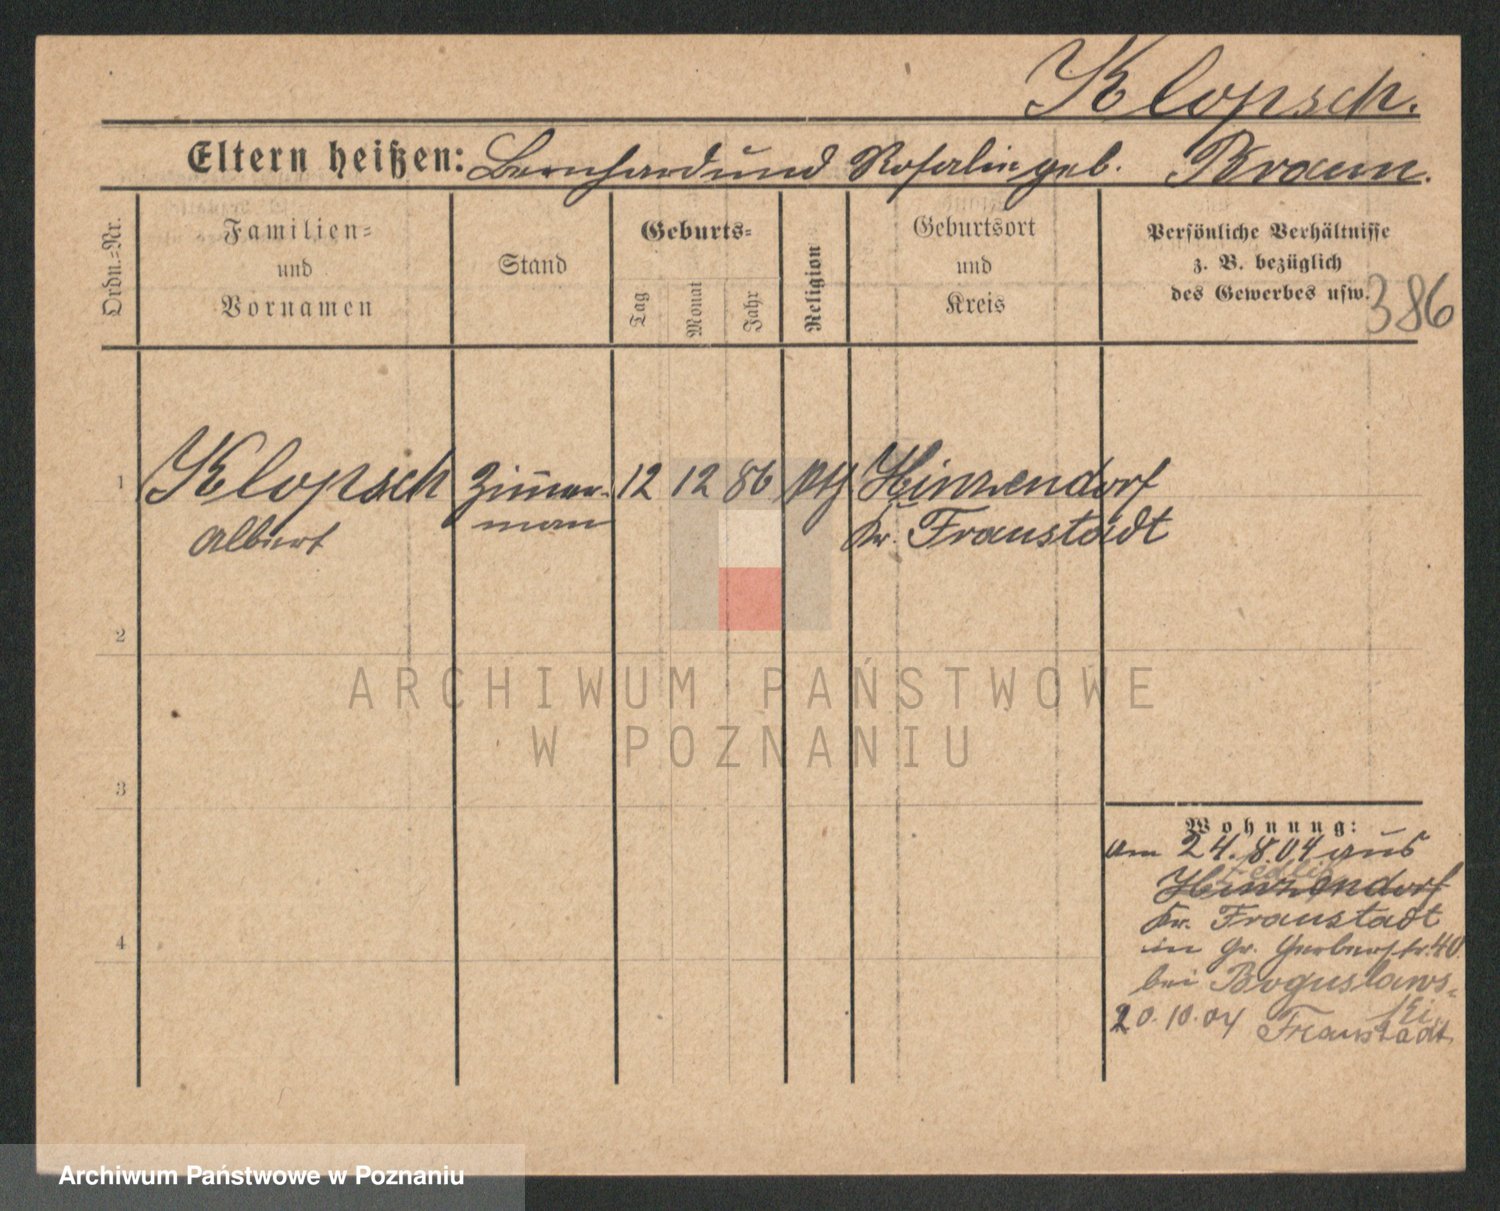 Klopsch.
Eltern heißen: Bernhard und Rosalie geb. Braun.
Ordn.-Nr.
Familien-
und
Vornamen
Stand
Geburts-
Tag
Monat
Jahr
Religion
Geburtsort
und
Kreis
Persönliche Verhältnisse
z. B. bezüglich
des Gewerbes usw.
386
1
Klopsch
Albert
Zim̄er-
man
12
12
86
Hinzendorf
Kr. Fraustadt
2
3
4
Wohnung:
am 24.8.04 aus
Hinzendorf
Kr. Fraustadt
in Gr. Gerberstr. 40
bei Boguslaws-
ki
20.10.04 Fraustadt
ARCHIWUM PAŃSTWOWE
W POZNANIU
Archiwum Państwowe w Poznaniu